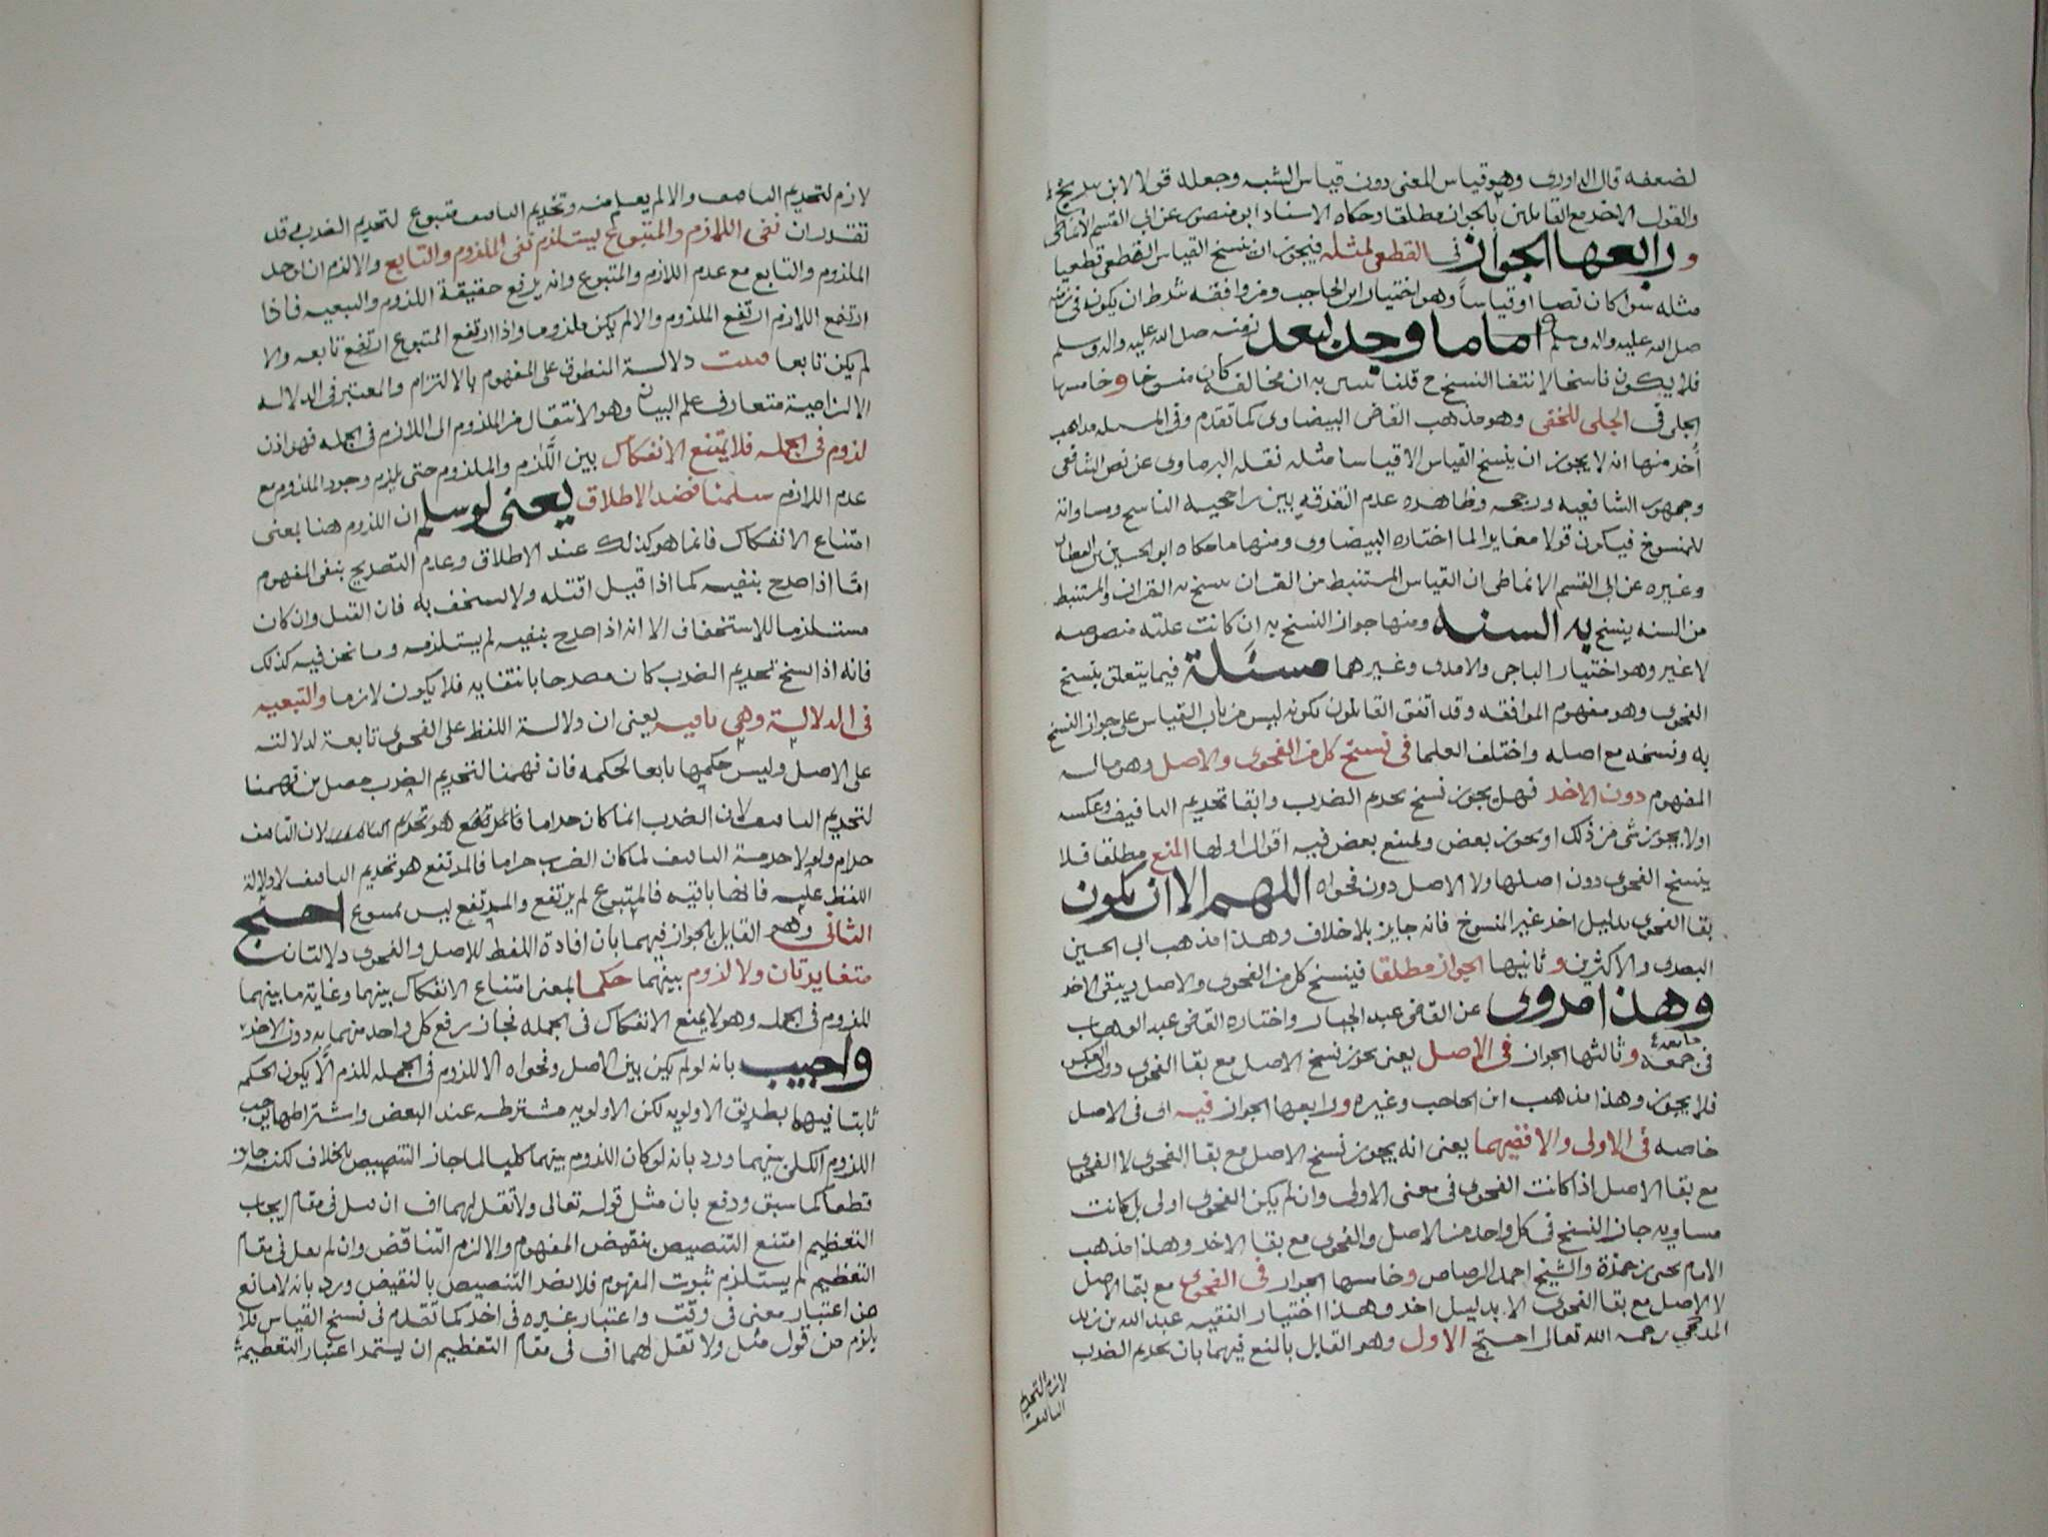 لضعفه قال الماوردى وهو قياس المعنى دون قياس الشبه وجعله قولا لابن سريج
والقول الاخر مع القايلين بالجواز مطلقا وحكاه الاستاد ابو منصور عن ابى القسم الانماطى
ورابعها الجواز فى القطعى لمثله فيجوز ان ينسخ القياس القطعى قطعيا
مثله سوا كان نصا او قياسا وهو اختيار ابن الحاجب ومن وافقه شرط ان يكون فى زمنه
صلى الله عليه واله وسلم اما ما وجد بعد زمنه صلى الله عليه واله وسلم
فلا يكون ناسخا لانتفا النسخ ح قلنا تبين به ان مخالفه كان منسوخا وخامسها
الجلى فى الجلى للخفى وهو مذهب القاضى البيضاوى كما تقدم وفى المسله مذاهب
أخر منها انه لا يجوز ان ينسخ القياس الا قياسا مثله نقله البرماوى عن نص الشافعى
وجمهور الشافعيه ورجحه وظاهره عدم التفرقه بين راجحيه الناسخ ومساواته
للمنسوخ فيكون قولا مغايرا لما اختاره البيضاوى ومنها ما حكاه ابو الحسين بن القطان
وغيره عن ابى القسم الانماطى ان القياس المستنبط من القران ينسخ به القران والمستنبط
من السنه ينسخ به السنه ومنها جواز النسخ به ان كانت علته منصوصه
لا غير وهو اختيار الباجى والامدى وغيرهما مسئلة فيما يتعلق بنسخ
الفحوى وهو مفهوم الموافقه وقد اتفق القايلون بكونه ليس من باب القياس على جواز النسخ
به ونسخه مع اصله واختلف العلما فى نسخ كل من الفحوى والاصل وهو ماله
المفهوم دون الاخر فهل يجوز نسخ تحريم الضرب وابقا تحريم التافيف وعكسه
اولا يجوز شى من ذلك او يجوز بعض ويمنع بعض فيه اقوال اولها المنع مطلقا فلا
ينسخ الفحوى دون اصلها ولا الاصل دون فحواه اللهم الا ان يكون
بقا الفحوى بدليل اخر غير المنسوخ فانه جايز بلا خلاف وهذا مذهب ابى الحسين
البصرى والاكثرين وثانيها الجواز مطلقا فينسخ كل من الفحوى والاصل ويبقى الاخر
وهذا مروى عن القاضى عبد الجبار واختاره القاضى عبد الوهاب
فى جمعه وثالثها الجواز فى الاصل يعنى يجوز نسخ الاصل مع بقا الفحوى دون العكس
فلا يجوز وهذا مذهب ابن الحاجب وغيره ورابعها الجواز فيه اى فى الاصل
خاصه فى الاولى والا ففيهما يعنى انه يجوز نسخ الاصل مع بقا الفحوى لا الفحوى
مع بقا الاصل اذا كانت الفحوى فى معنى الاولى وان لم يكن الفحوى اولى بل كانت
مساويه جاز النسخ فى كل واحد من الاصل والفحوى مع بقا الاخر وهذا مذهب
الامام يحيى بن حمزة والشيخ احمد الرصاص وخامسها الجواز فى الفحوى مع بقا الاصل
لا الاصل مع بقا الفحوى الا بدليل اخر وهذا اختيار الفقيه عبد الله بن زيد
المذحجى رحمه الله تعالى احتج الاول وهو القايل بالمنع فيهما بان تحريم الضرب
لازم لتحريم
التافيف
لازم لتحريم التافيف والا لم يعلم منه وتحريم التافيف متبوع لتحريم الضرب وقد
تقرر ان نفى اللازم والمتبوع يستلزم نفى الملزوم والتابع والا لزم ان يوجد
الملزوم والتابع مع عدم اللازم والمتبوع وانه يرفع حقيقة اللزوم والتبعيه فاذا
ارتفع اللازم ارتفع الملزوم والا لم يكن ملزوما واذا ارتفع المتبوع ارتفع تابعه والا
لم يكن تابعا قلت دلالة المنطوق على المفهوم بالالتزام والمعتبر فى الدلاله
الالتزامية متعارف علم البيان وهو الانتقال من الملزوم الى اللازم فى الجمله فهو اذن
لزوم فى الجمله فلا يمتنع الانفكاك بين اللازم والملزوم حتى يلزم وجود الملزوم مع
عدم اللازم سلمنا فضد الاطلاق يعنى لو سلم ان اللزوم هنا بمعنى
امتناع الانفكاك فانما هو كذلك عند الاطلاق وعدم التصريح بنفى المفهوم
امّا اذا صرح بنفيه كما اذا قيل اقتله ولا تستخف به فان القتل وان كان
مستلزما للاستخفاف الا انه اذا صرح بنفيه لم يستلزمه وما نحن فيه كذلك
فانه اذا نسخ تحريم الضرب كان مصرحا بانتفايه فلا يكون لازما والتبعيه
فى الدلالة وهى باقيه يعنى ان دلالة اللفظ على الفحوى تابعة لدلالته
على الاصل وليس حكمها تابعا لحكمه فان فهمنا لتحريم الضرب حصل من فهمنا
لتحريم التافيف لا ان الضرب انما كان حراما فالمرتفع هو تحريم التافيف لان التافيف
حرام ولولا حرمة التافيف لما كان الضرب حراما فالمرتفع هو تحريم التافيف لا دلالة
اللفظ عليه فانها باقيه فالمتبوع لم يرتفع والمرتفع ليس بمتبوع احتج
الثانى وهو القايل بالجواز فيهما بان افادة اللفظ للاصل والفحوى دلالتان
متغايرتان ولا لزوم بينهما حكما بمعنى امتناع الانفكاك بينهما وغاية ما بينهما
اللزوم فى الجمله وهو لا يمنع الانفكاك فى الجمله فجاز رفع كل واحد منهما به دون الاخر
واجيب بانه لو لم يكن بين الاصل وفحواه الا اللزوم فى الجمله للزم ألّا يكون الحكم
ثابتا فيهما بطريق الاولويه لكن الاولويه مشترطه عند البعض واشتراطها يوجب
اللزوم الكلى بينهما ورد بانه لو كان اللزوم بينهما كليا لما جاز التنصيص بالخلاف لكنه جايز
قطعا كما سبق ودفع بان مثل قوله تعالى ولا تقل لهما اف ان قيل فى مقام ايجاب
التعظيم امتنع التنصيص بنقيض المفهوم والا لزم التناقض وان لم يقل فى مقام
التعظيم لم يستلزم ثبوت المفهوم فلا يضر التنصيص بالنقيض ورد بانه لا مانع
من اعتبار معنى فى وقت واعتبار غيره فى اخر كما تقدم فى نسخ القياس فلا
يلزم من قول مثل ولا تقل لهما اف فى مقام التعظيم ان يستمر اعتبار التعظيم